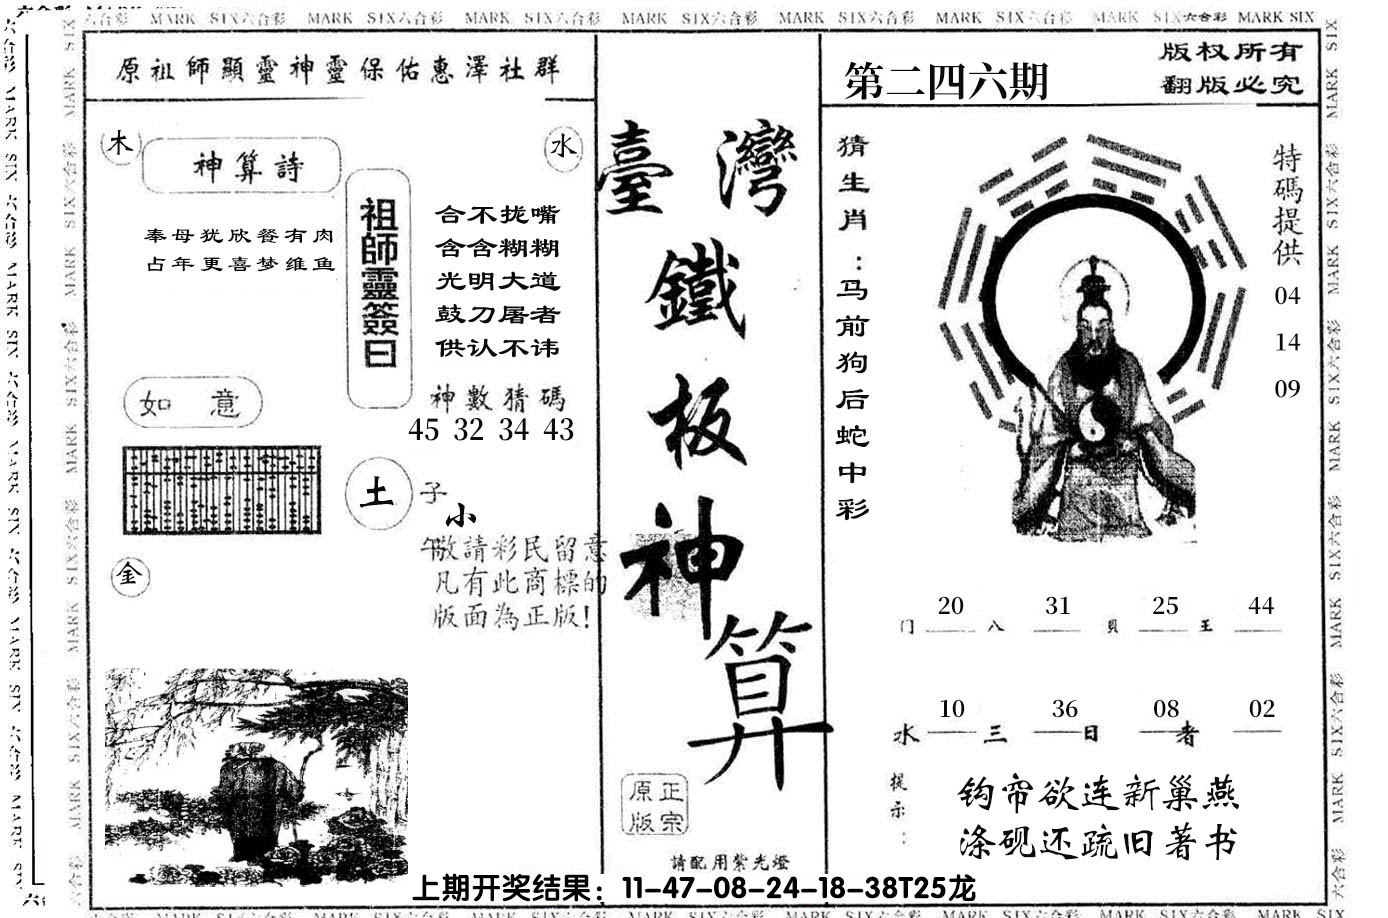 六合彩 MARK SIX六合彩 MARK SIX六合彩 MARK SIX六合彩 MARK SIX六合彩 MARK SIX六合彩 MARK SIX六合彩 MARK SIX六合彩 MARK SIX
原祖師顯靈神靈保佑惠澤社群
木
水
神算詩
奉母犹欣餐有肉
占年更喜梦维鱼
祖師靈簽曰
合不拢嘴
含含糊糊
光明大道
鼓刀屠者
供认不讳
神數猜碼
45 32 34 43
如 意
土
子
小
午
敬請彩民留意
凡有此商標的
版面為正版!
金
臺灣
鐵
板
神
算
正宗
原版
請配用紫光燈
第二四六期
版权所有
翻版必究
猜生肖：马前狗后蛇中彩
特碼提供
04
14
09
20 31 25 44
门 八 貝 王
10 36 08 02
水 三 日 者
提示：
钩帘欲连新巢燕
涤砚还疏旧著书
上期开奖结果：11-47-08-24-18-38T25龙